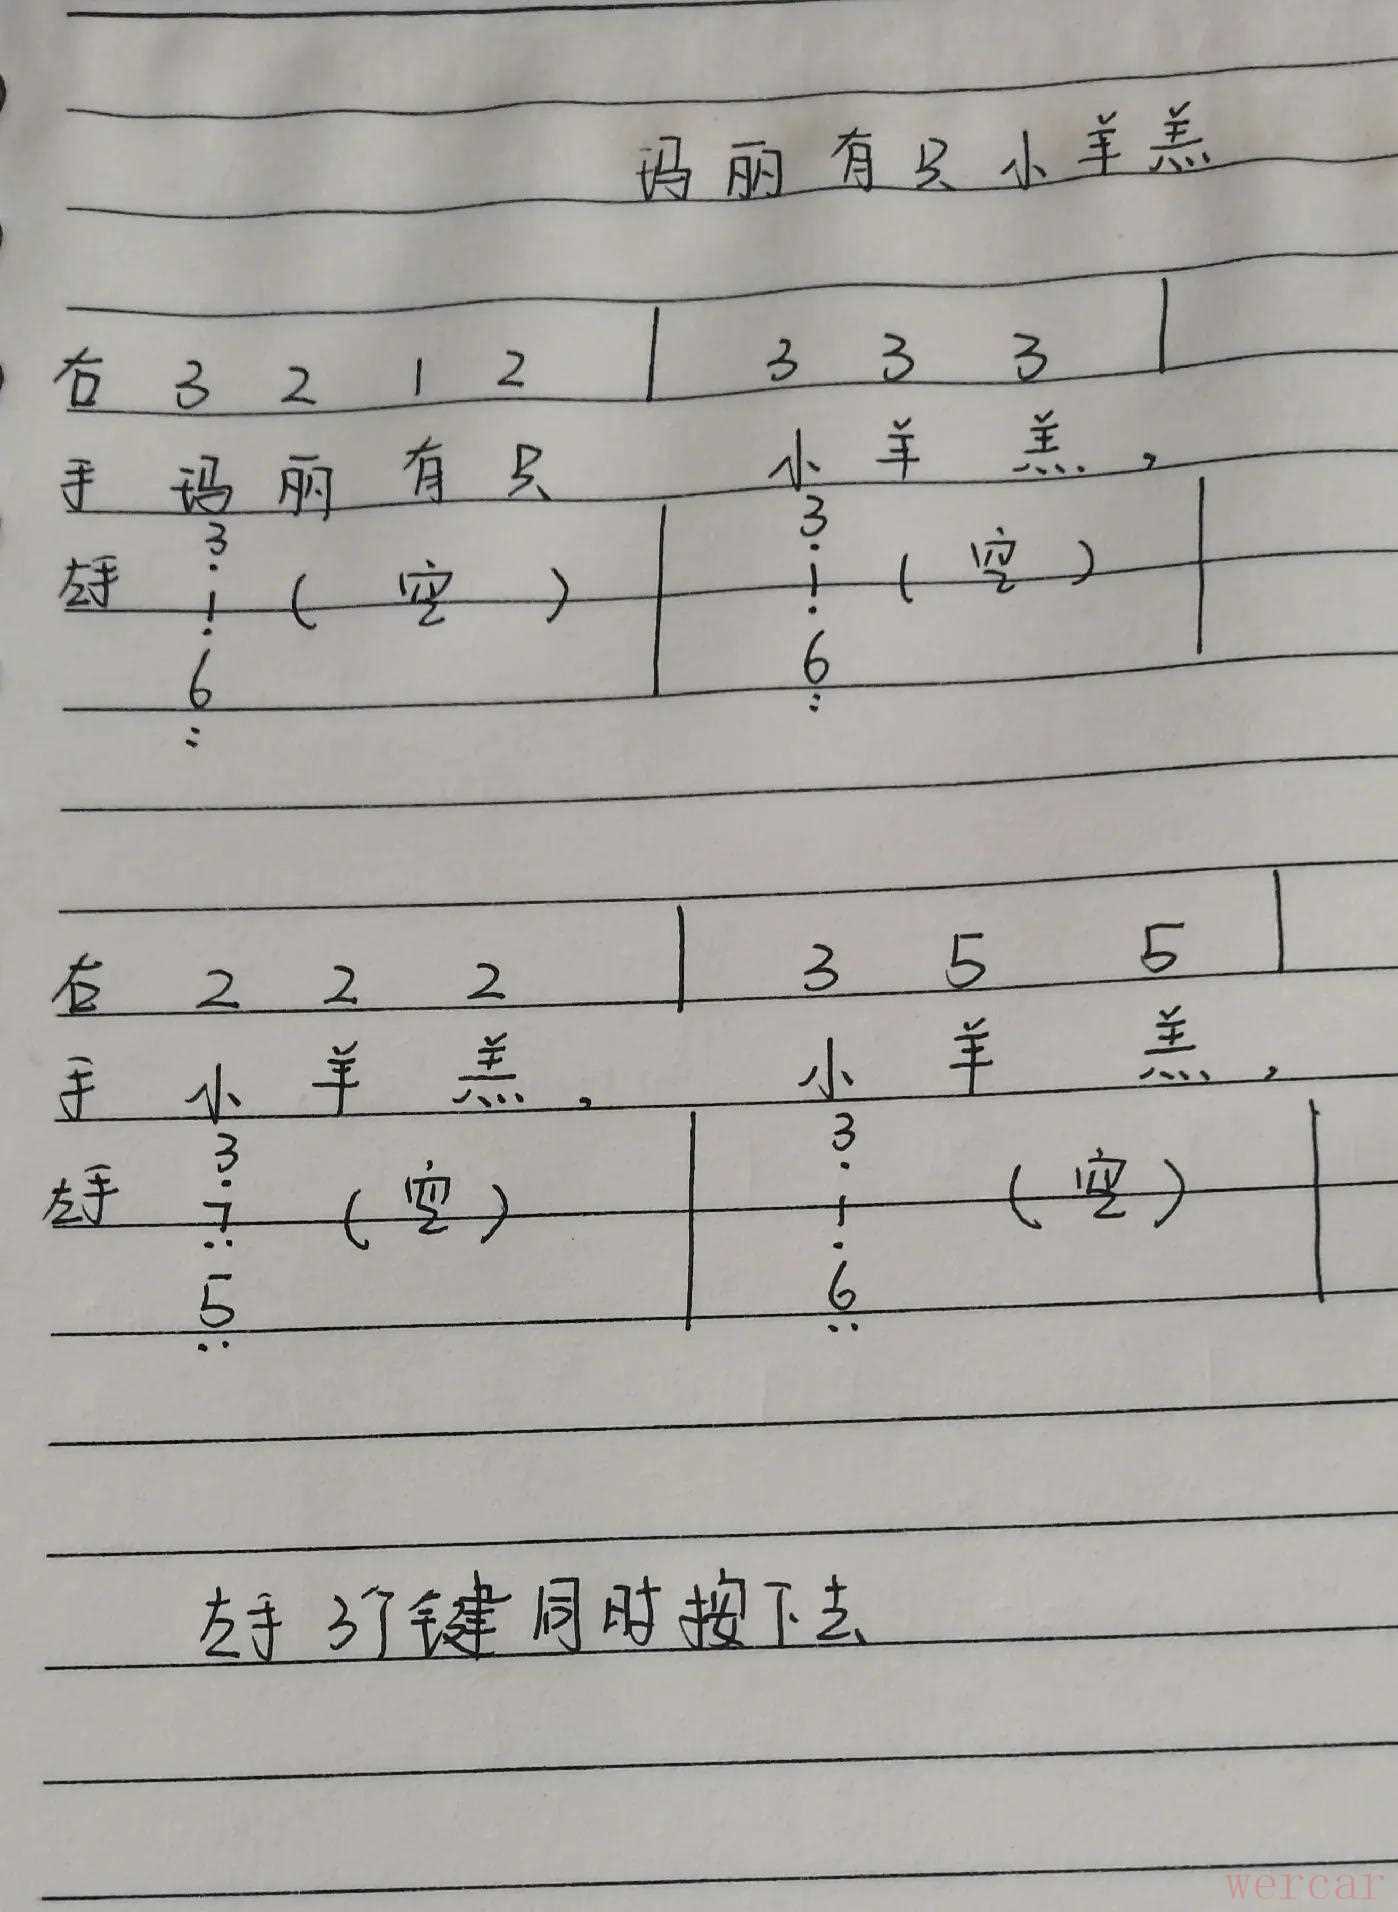 玛丽有只小羊羔
右 3 2 1 2 | 3 3 3 |
手 玛丽有只 小羊羔，
3 3
左手 1 ( 空 ) | 1 ( 空 ) |
6 6
右 2 2 2 | 3 5 5 |
手 小羊羔， 小羊羔，
3 3
左手 7 ( 空 ) | 1 ( 空 ) |
5 6
左手3个键同时按下去
wercar